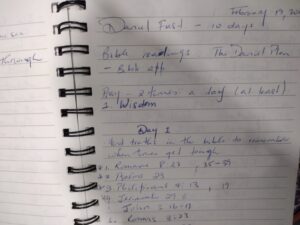 through
February 19, 20
Daniel Fast - 10 days
Bible readings The Daniel Plan
- Bible app
Pray - 2 times a day (at least)
1 Wisdom
Day 1
truths in the bible to remember
when times get tough
*1. Romans 8:27, 35-39
*2 Psalms 23
*3 Philippians 4:13, 19
*4 Jeremiah 29:
John 3:16-17
6. Romans 8:23